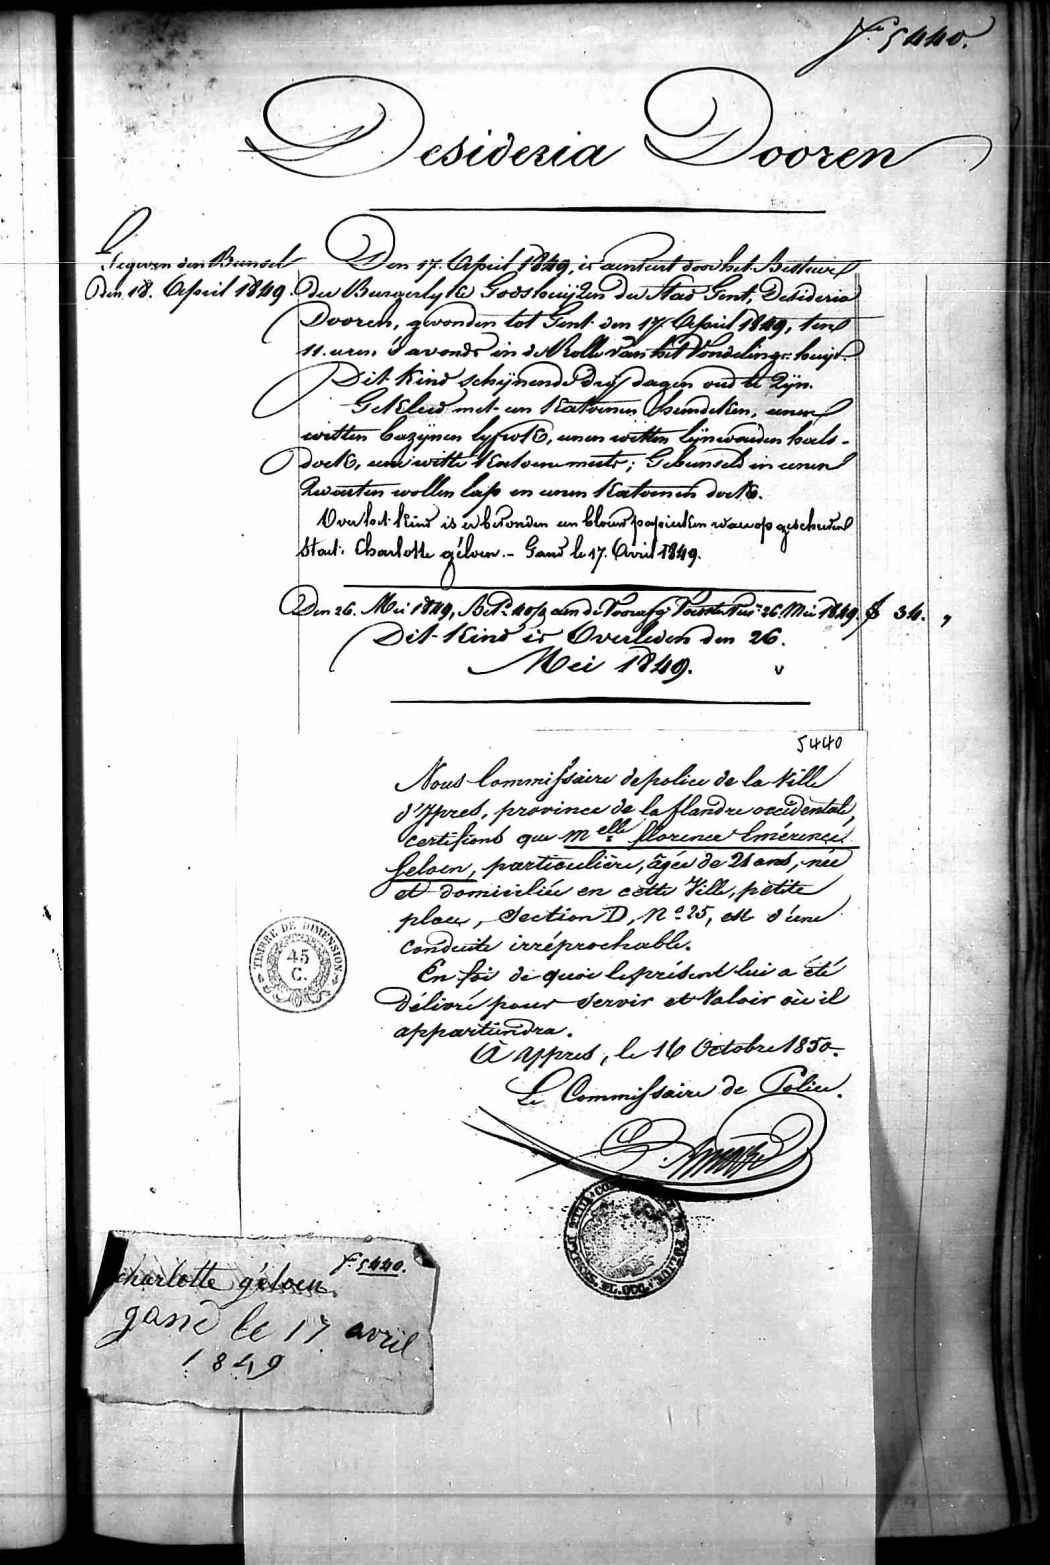 F. 5440.
Desideria Dooren
Gegeven den Bunsel
Den 18. April 1849.
Den 17. April 1849, is aenveert door het Bestuer
der Burgerlyke Godshuijzen der Stad Gent, Desideria
Dooren, gevonden tot Gent den 17. April 1849, ten
11. uren 's avonds in de Rolle van het Vondelings-huijs.
Dit kind schijnende drij dagen oud te zijn.
Gekleed met een katoenen hemdeken, eenen
witten bazijnen lyfrok, eenen witten lijnwaeden hals-
doek, eene witte katoene muts; Gebunseld in eenen
zwarten wollen lap en eenen katoenen doek.
Over het kind is er bevonden een blauw papierken waerop geschreven
staet: Charlotte géloen. - Gand le 17. Avril 1849.
Den 26. Mei 1849, Bet. aen de 26. Mei 1849. 34.
Dit kind is Overleden den 26.
Mei 1849.
5440
Nous Commissaire de police de la Ville
d'Ypres, province de la flandre occidentale,
certifions que melle florence Emérence
Geloen, particulière, âgée de 21 ans, née
et domiciliée en cette Ville, petite
place, Section D, No. 25, est d'une
conduite irréprochable.
En foi de quoi le présent lui a été
délivré pour servir et valoir où il
appartiendra.
À Ypres, le 16 Octobre 1850.
Le Commissaire de Police.
TIMBRE DE DIMENSION
45
C.
F. 5440.
charlotte géloen
gand le 17 avril
1849